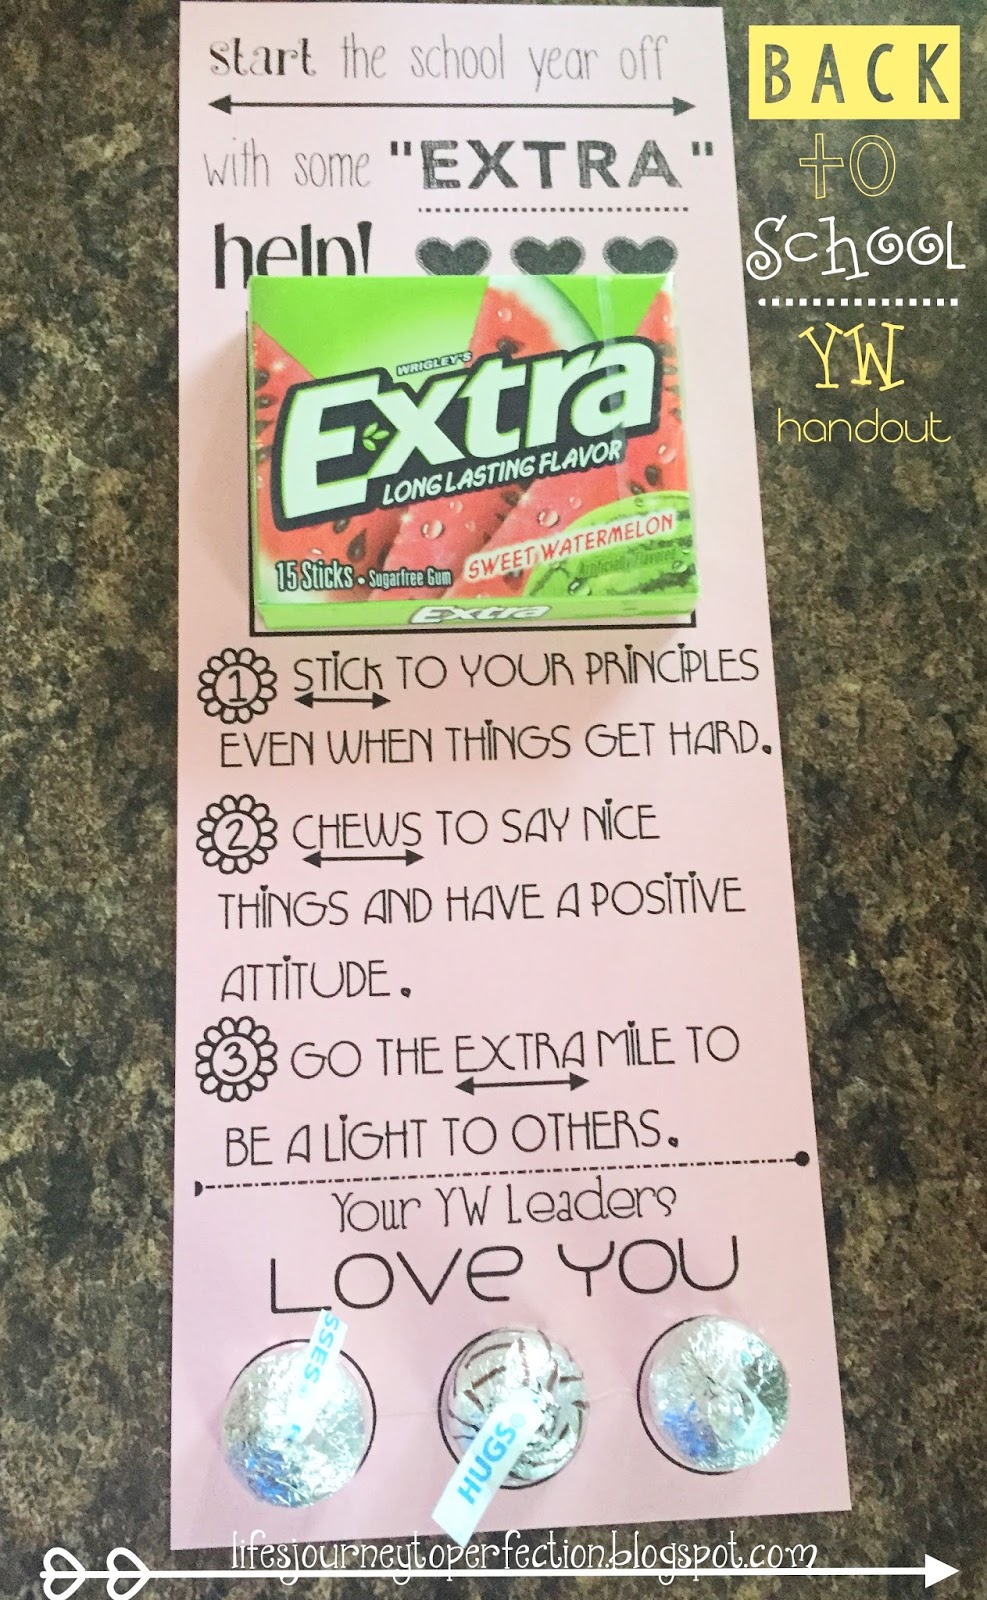 start the school year off
with some "EXTRA"
help!
WRIGLEY'S
Extra
LONG LASTING FLAVOR
SWEET WATERMELON
Artificially Flavored
15 Sticks • Sugarfree Gum
Extra
1 STICK TO YOUR PRINCIPLES
EVEN WHEN THINGS GET HARD.
2 CHEWS TO SAY NICE
THINGS AND HAVE A POSITIVE
ATTITUDE.
3 GO THE EXTRA MILE TO
BE A LIGHT TO OTHERS.
Your YW Leaders
LOVE YOU
SSES
HUGS
BACK
to
School
YW
handout
lifesjourneytoperfection.blogspot.com